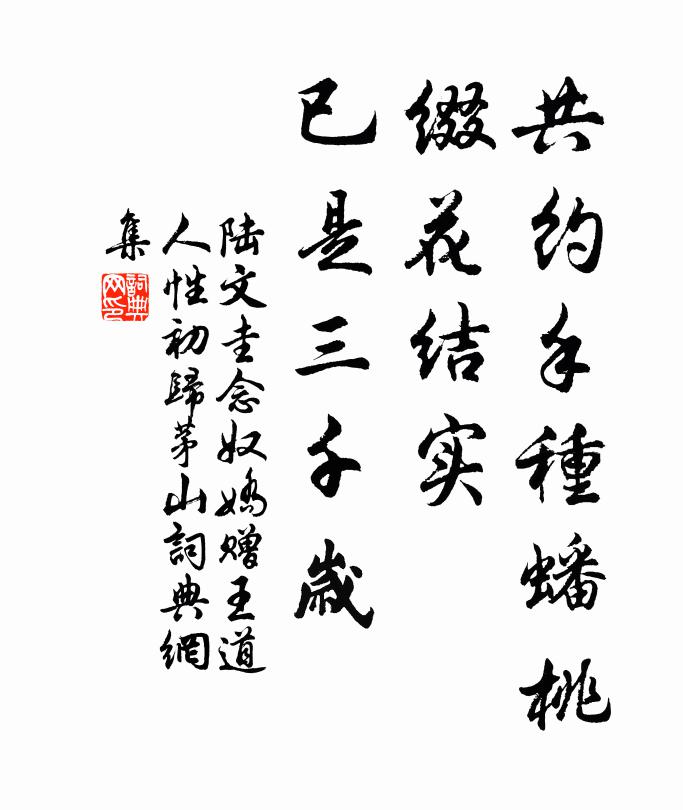 共约手種蟠桃
缀花结实
已是三千歲
陆文圭念奴嬌赠王道
人性初歸茅山詞典網
集
詞典
网印